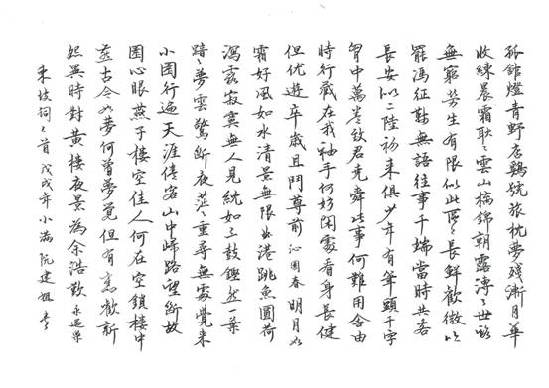 孤館燈青野店鷄號旅枕夢殘漸月華
收練晨霜耿〻雲山摛錦朝露漙〻世路
無窮勞生有限似此區〻長鮮歡微吟
罷馮征鞍無語往事千端當時共客
長安似二陸初來俱少年有筆頭千字
胷中萬卷致君堯舜此事何難用舍由
時行藏在我袖手何妨閑處看身長健
但优遊卒歲且鬥尊前 沁園春 明月如
霜好風如水清景無限曲港跳魚圓荷
瀉露寂寞無人見紞如三鼓鏗然一葉
黯〻夢雲驚斷夜茫〻重尋無處覺來
小園行遍天涯倦客山中歸路望斷故
園心眼燕子樓空佳人何在空鎖樓中
燕古今如夢何曾夢覺但有舊歡新
怨異時對黄樓夜景為余浩歎 永遇樂
東坡詞二首 戊戌年小滿 阮建